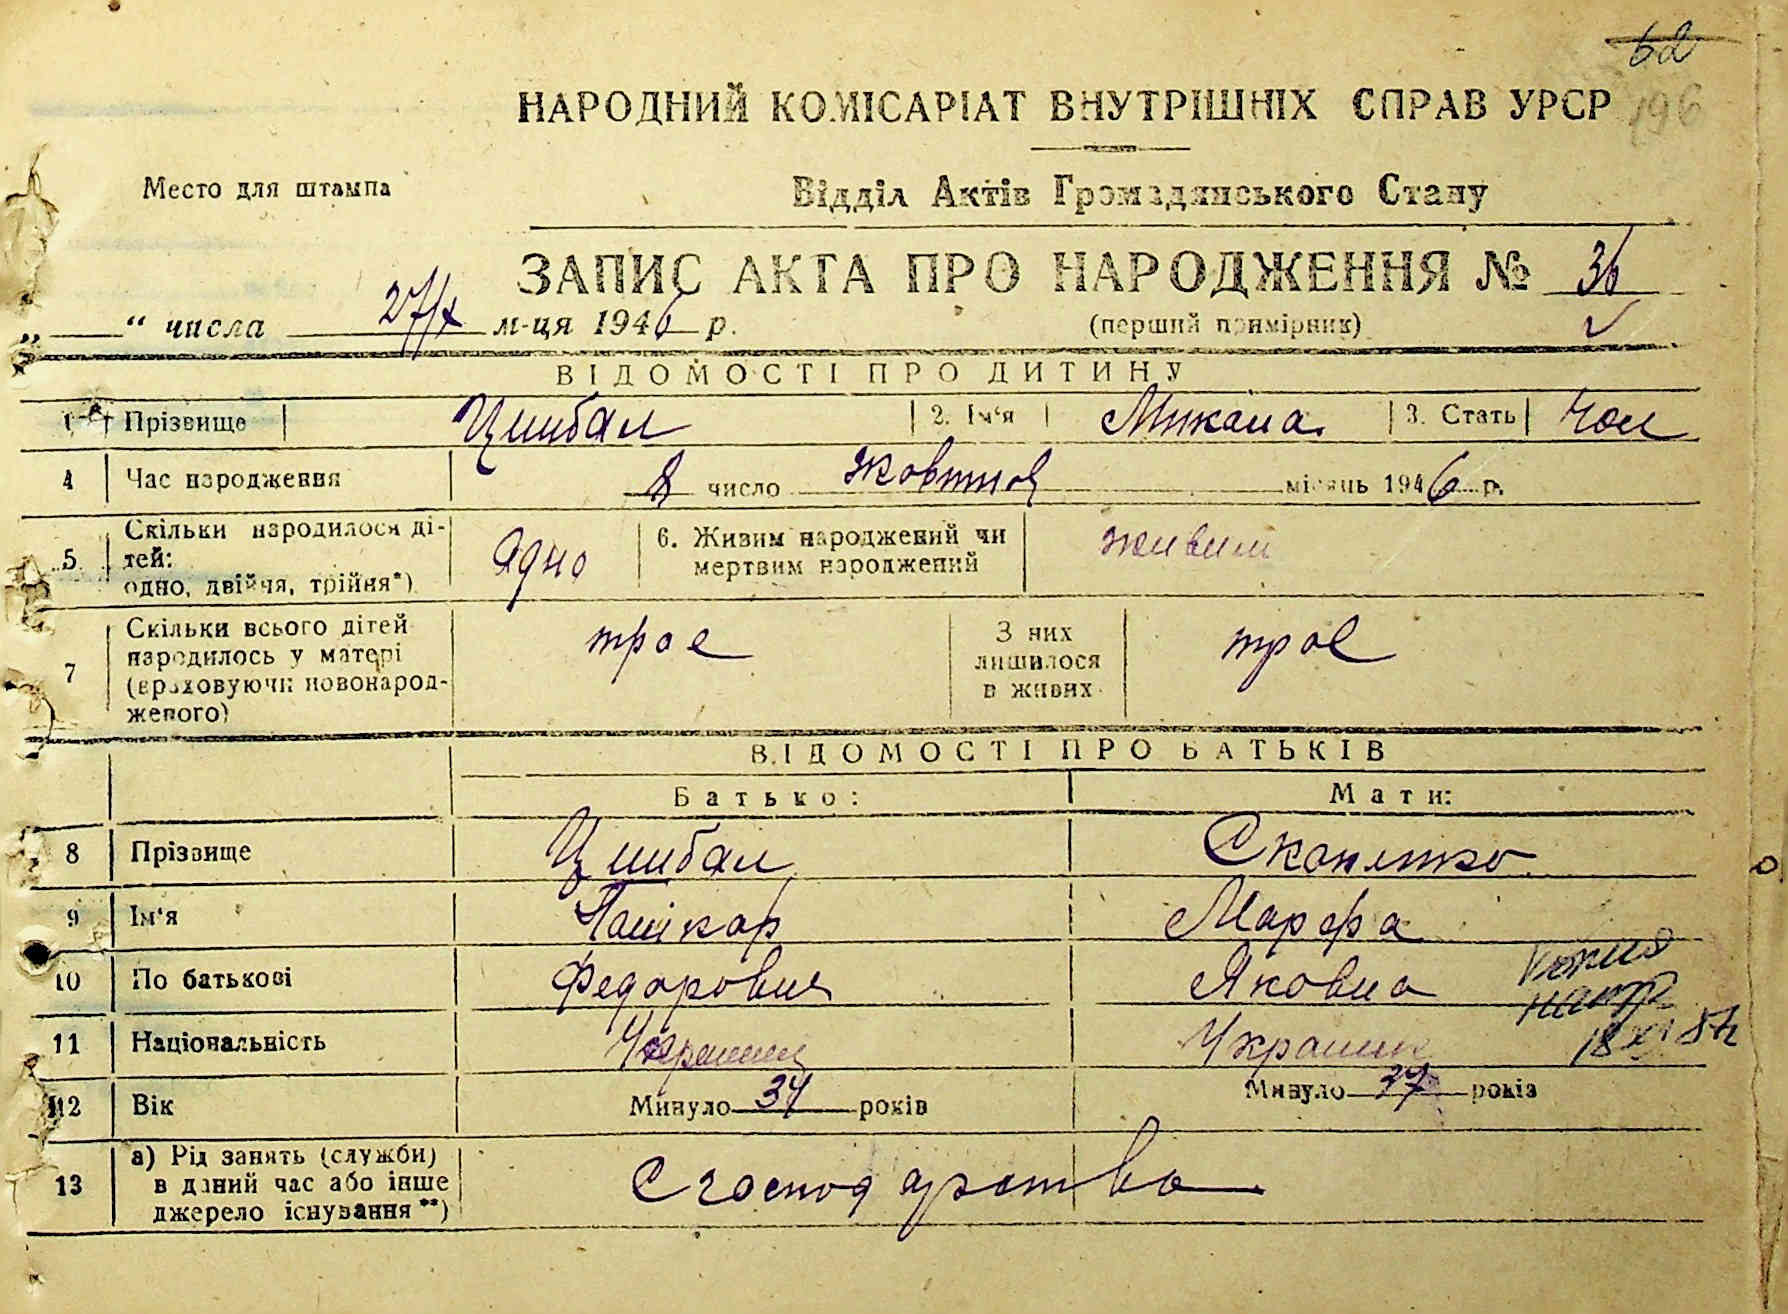 62
НАРОДНИЙ КОМІСАРІАТ ВНУТРІШНІХ СПРАВ УРСР 196
Место для штампа
Відділ Актів Громадянського Стану
ЗАПИС АКТА ПРО НАРОДЖЕННЯ № 36
„ “ числа 27/X м-ця 1946 р. (перший примірник)
ВІДОМОСТІ ПРО ДИТИНУ
1 Прізвище Цимбал 2. Ім‘я Микола 3. Стать Чол
4 Час народження 8 число жовтня місяць 1946 р.
5 Скільки народилося дітей: одно, двійня, трійня*) Одно 6. Живим народжений чи мертвим народжений живим
7 Скільки всього дітей народилось у матері (враховуючи новонародженого) трое З них лишилося в живих трое
ВІДОМОСТІ ПРО БАТЬКІВ
Батько: Мати:
8 Прізвище Цимбал
9 Ім‘я Пашкар Марфа
10 По батькові Федорович Яковна
11 Національність Украинец Украинк
12 Вік Минуло 34 років Минуло 37 років
13 а) Рід занять (служби) в даний час або інше джерело існування**) С господарство